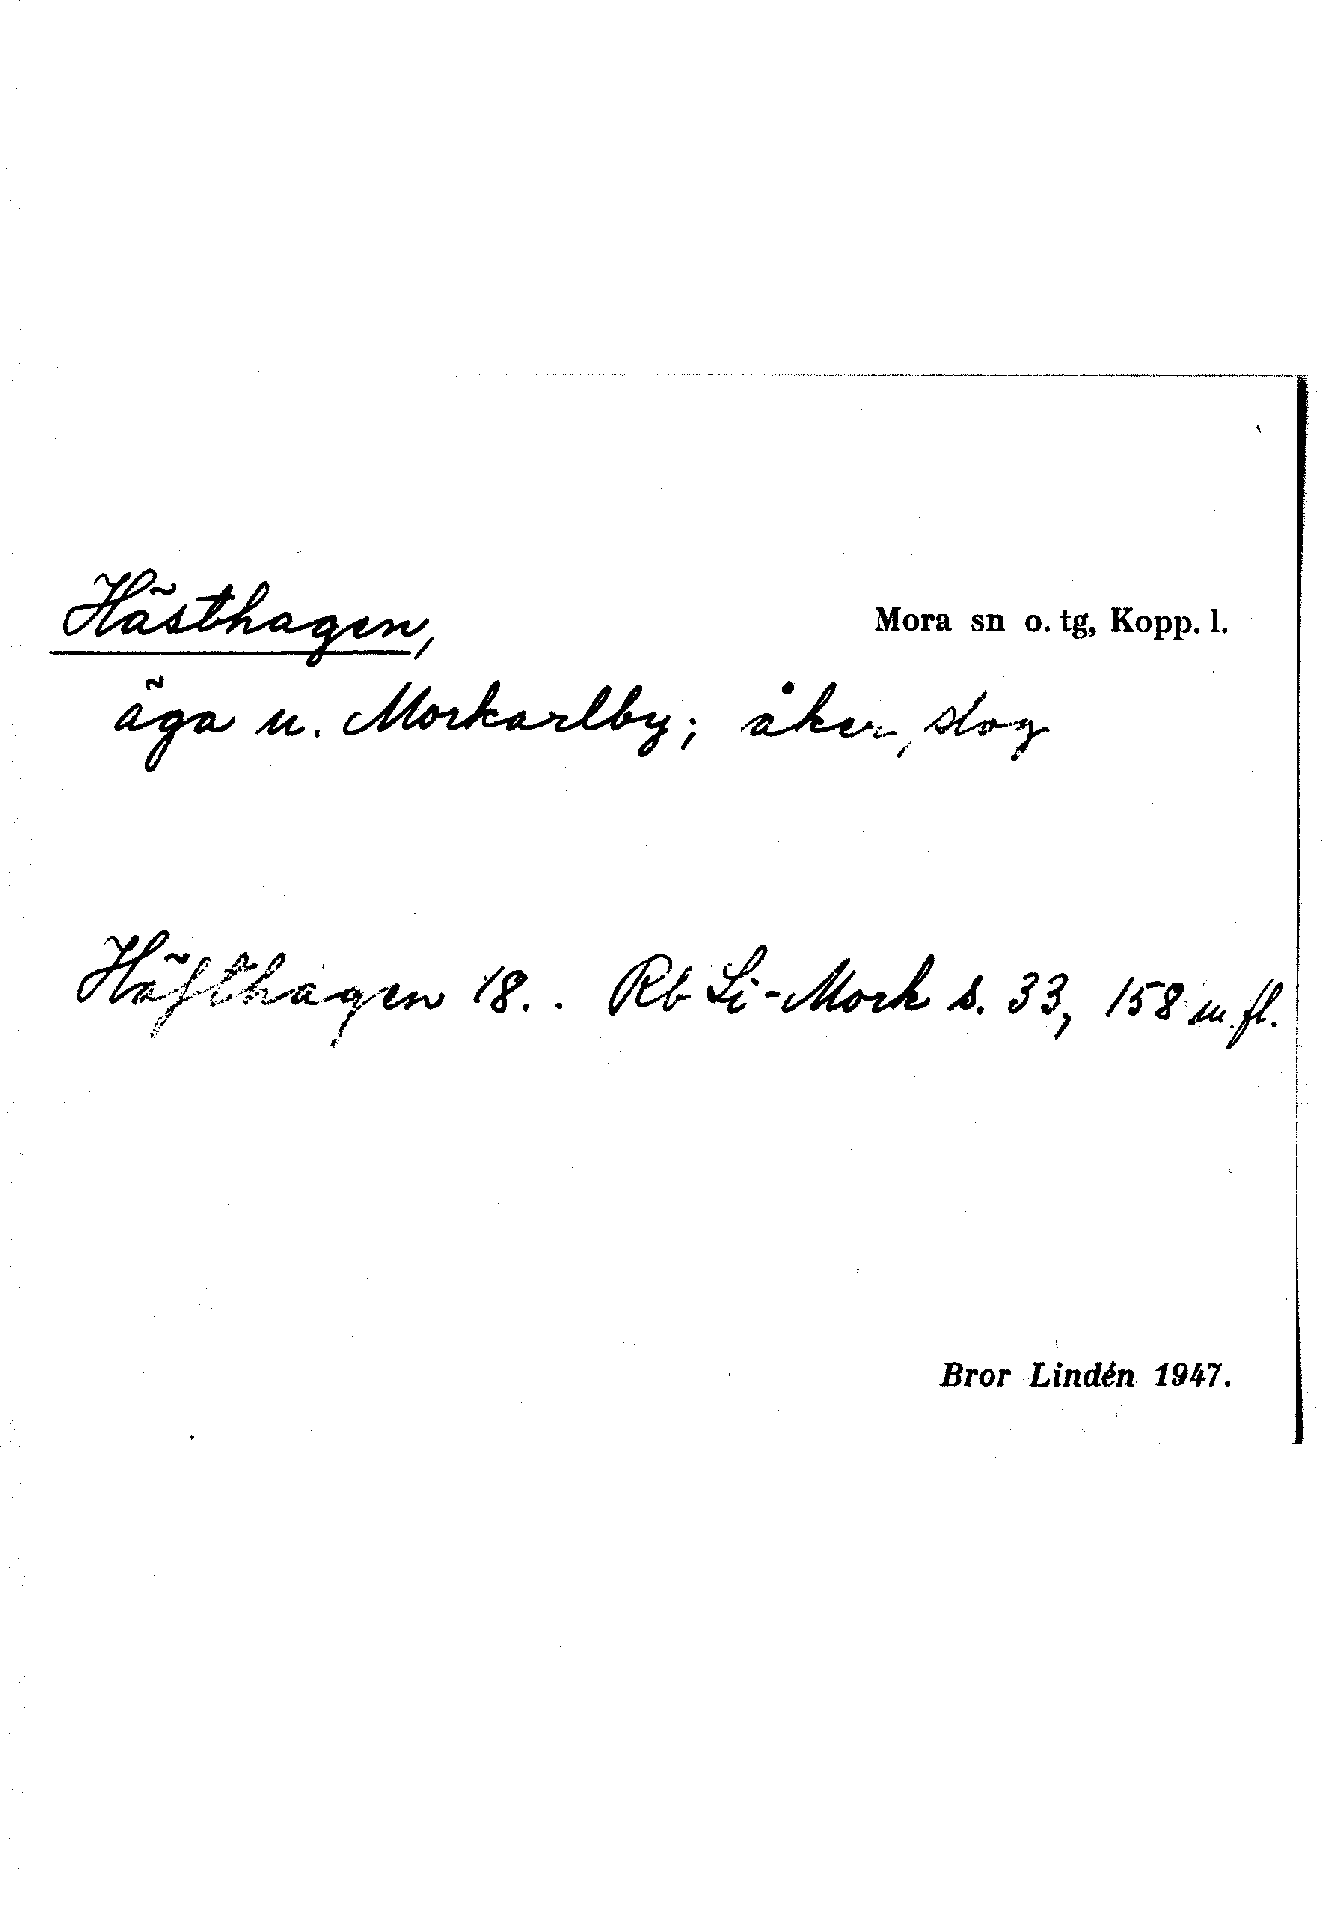 Hästhagen, Mora sn o. tg, Kopp. l.
äga u. Morkarlby; åker, slog
Häſthagen 18.. Rb Li-Mork s. 33, 158 m. fl.
Bror Lindén 1947.